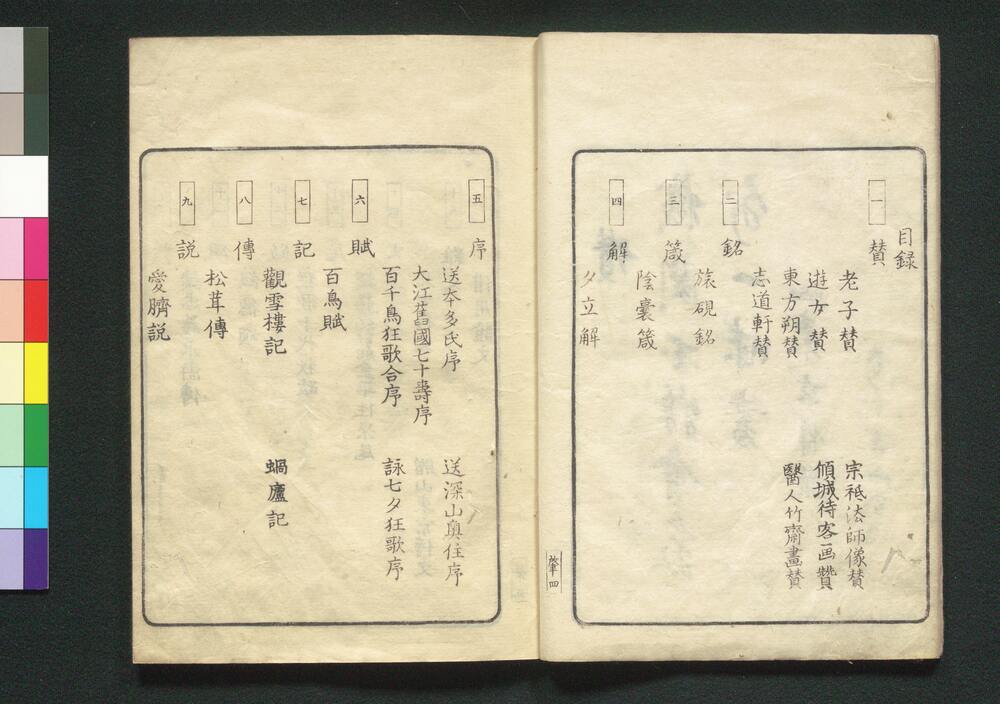 目録
一 賛
老子賛
宗祇法師像賛
遊女賛
傾城待客画贊
東方朔賛
醫人竹齋畫賛
志道軒賛
二 銘
旅硯銘
三 箴
陰嚢箴
四 解
夕立解
五 序
送本多氏序
送深山奥住序
大江舊國七十壽序
百千鳥狂歌合序
詠七夕狂歌序
六 賦
百鳥賦
七 記
觀雪樓記
蝸廬記
八 傳
松茸傳
九 説
愛臍説